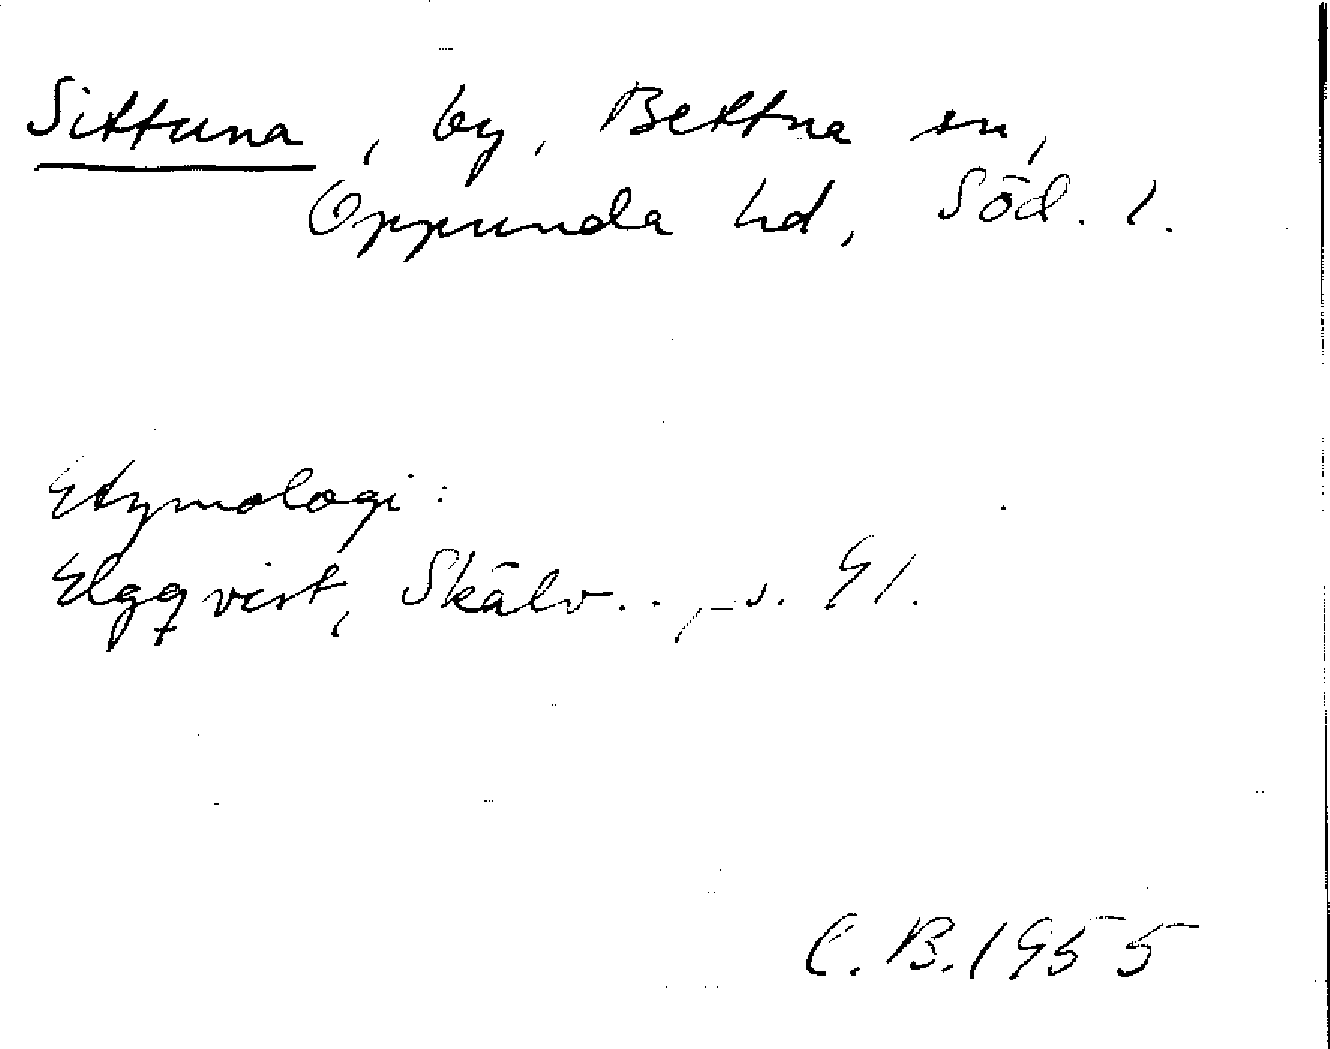 Sittuna, by, Bettna sn,
Oppunda hd, Söd. l.
Etymologi:
Elgqvist, Skälv.., s. 91.
C. B. 1955